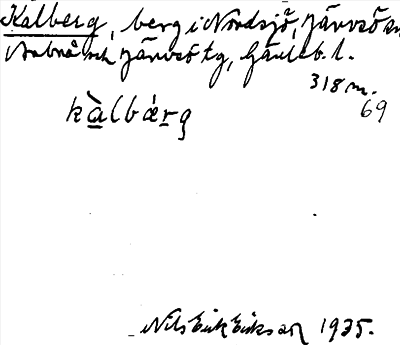 Kalberg, berg i Nordsjö, Järvsö sn
Arbrå och Järvsö tg, Gävleb. l.
318 m.
69
kàlbærg
Nils Erik Eriksson 1935.